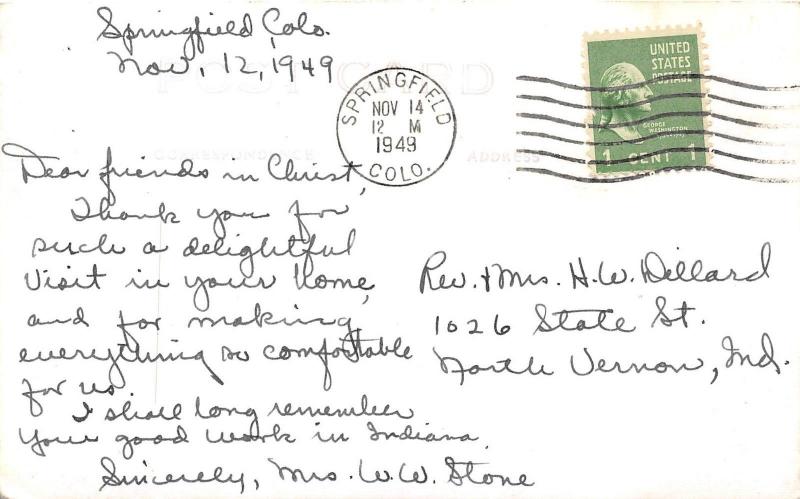 Springfield, Colo.
Nov, 12, 1949
POST CARD
SPRINGFIELD
NOV 14
12 M
1949
COLO.
UNITED
STATES
POSTAGE
GEORGE
WASHINGTON
1 CENT 1
CORRESPONDENCE
ADDRESS
Dear friends in Christ,
Thank you for
such a delightful
visit in your home,
and for making
everything so comfortable
for us.
I shall long remember
your good work in Indiana.
Sincerely, Mrs. W.W. Stone
Rev. & Mrs. H.W. Dillard
1026 State St.
North Vernon, Ind.